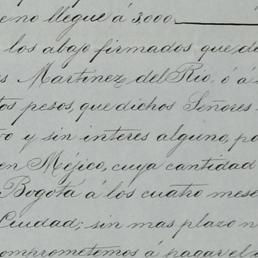 eno llegue á 3000
los abajo firmados que de
Martinez del Rio, ó á
tos pesos, que dichos Señores
o y sin interes alguno, po
en Méjico, cuya cantidad
Bogotá á los cuatro mese
Ciudad; sin mas plazo n
comprometemos á pagar el